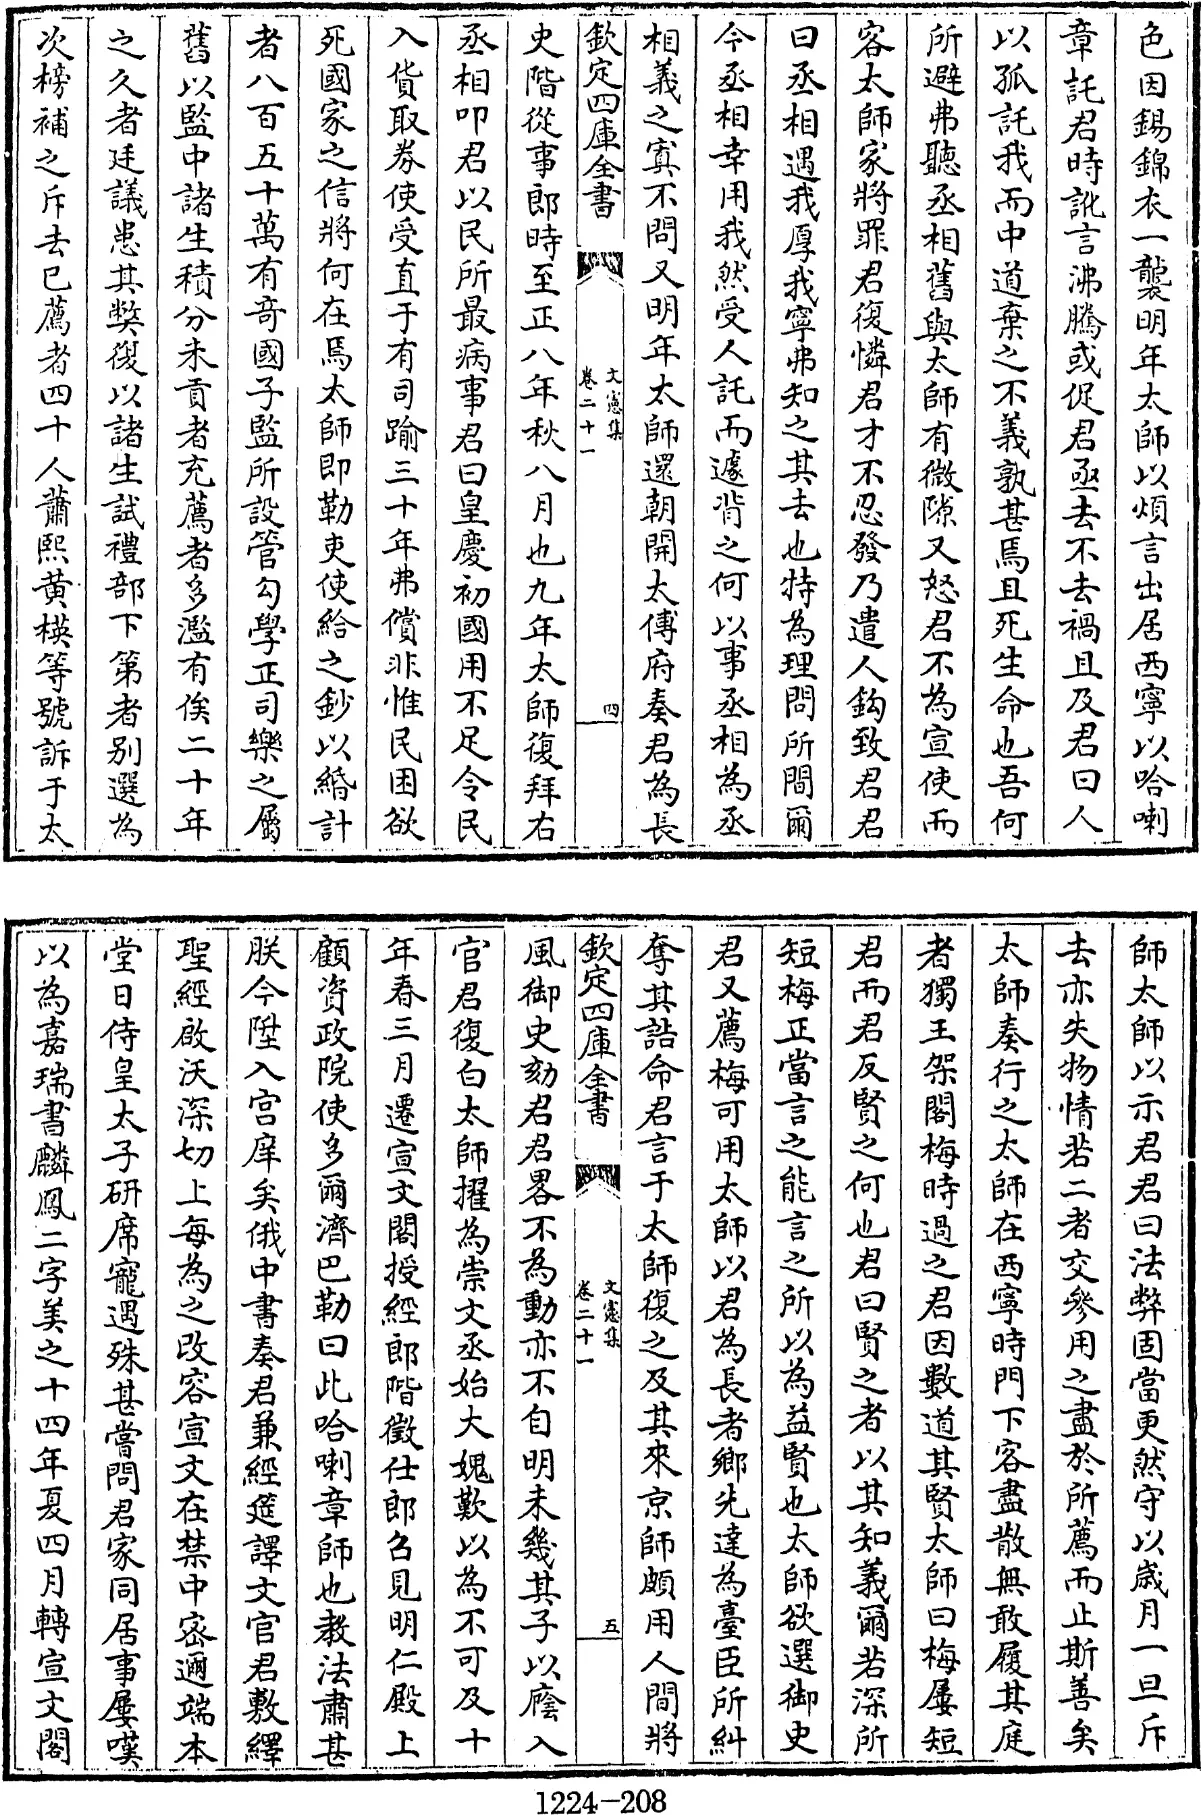 色因錫錦衣一襲明年太師以煩言出居西寧以哈喇
章託君時訛言沸騰或促君亟去不去禍且及君曰人
以孤託我而中道棄之不義孰甚焉且死生命也吾何
所避弗聽丞相舊與太師有微隙又怒君不為宣使而
容太師家將罪君復憐君才不忍發乃遣人鈎致君君
曰丞相遇我厚我寧弗知之其去也特為理問所間爾
今丞相幸用我然受人託而遽背之何以事丞相為丞
相義之寘不問又明年太師還朝開太傅府奏君為長
欽定四庫全書
文憲集
卷二十一
四
史階從事郎時至正八年秋八月也九年太師復拜右
丞相叩君以民所最病事君曰皇慶初國用不足令民
入貨取券使受直于有司踰三十年弗償非惟民困欲
死國家之信將何在焉太師即勒吏使給之鈔以緡計
者八百五十萬有奇國子監所設管勾學正司樂之屬
舊以監中諸生積分未貢者充薦者多濫有俟二十年
之久者廷議患其獘復以諸生試禮部下第者別選為
次榜補之斥去已薦者四十人蕭熙黄楧等號訴于太
師太師以示君君曰法弊固當更然守以歲月一旦斥
去亦失物情若二者交參用之盡於所薦而止斯善矣
太師奏行之太師在西寧時門下客盡散無敢履其庭
者獨王架閣梅時過之君因數道其賢太師曰梅屢短
君而君反賢之何也君曰賢之者以其知義爾若深所
短梅正當言之能言之所以為益賢也太師欲選御史
君又薦梅可用太師以君為長者鄉先達為臺臣所糾
奪其誥命君言于太師復之及其來京師頗用人間將
欽定四庫全書
文憲集
卷二十一
五
風御史劾君君畧不為動亦不自明未幾其子以廕入
官君復白太師擢為崇文丞始大媿歎以為不可及十
年春三月遷宣文閣授經郎階徵仕郎召見明仁殿上
顧資政院使多爾濟巴勒曰此哈喇章師也教法肅甚
朕今陞入宫庠矣俄中書奏君兼經筵譯文官君敷繹
聖經啟沃深切上每為之改容宣文在禁中密邇端本
堂日侍皇太子研席寵遇殊甚嘗問君家同居事屢嘆
以為嘉瑞書麟鳳二字美之十四年夏四月轉宣文閣
1224-208